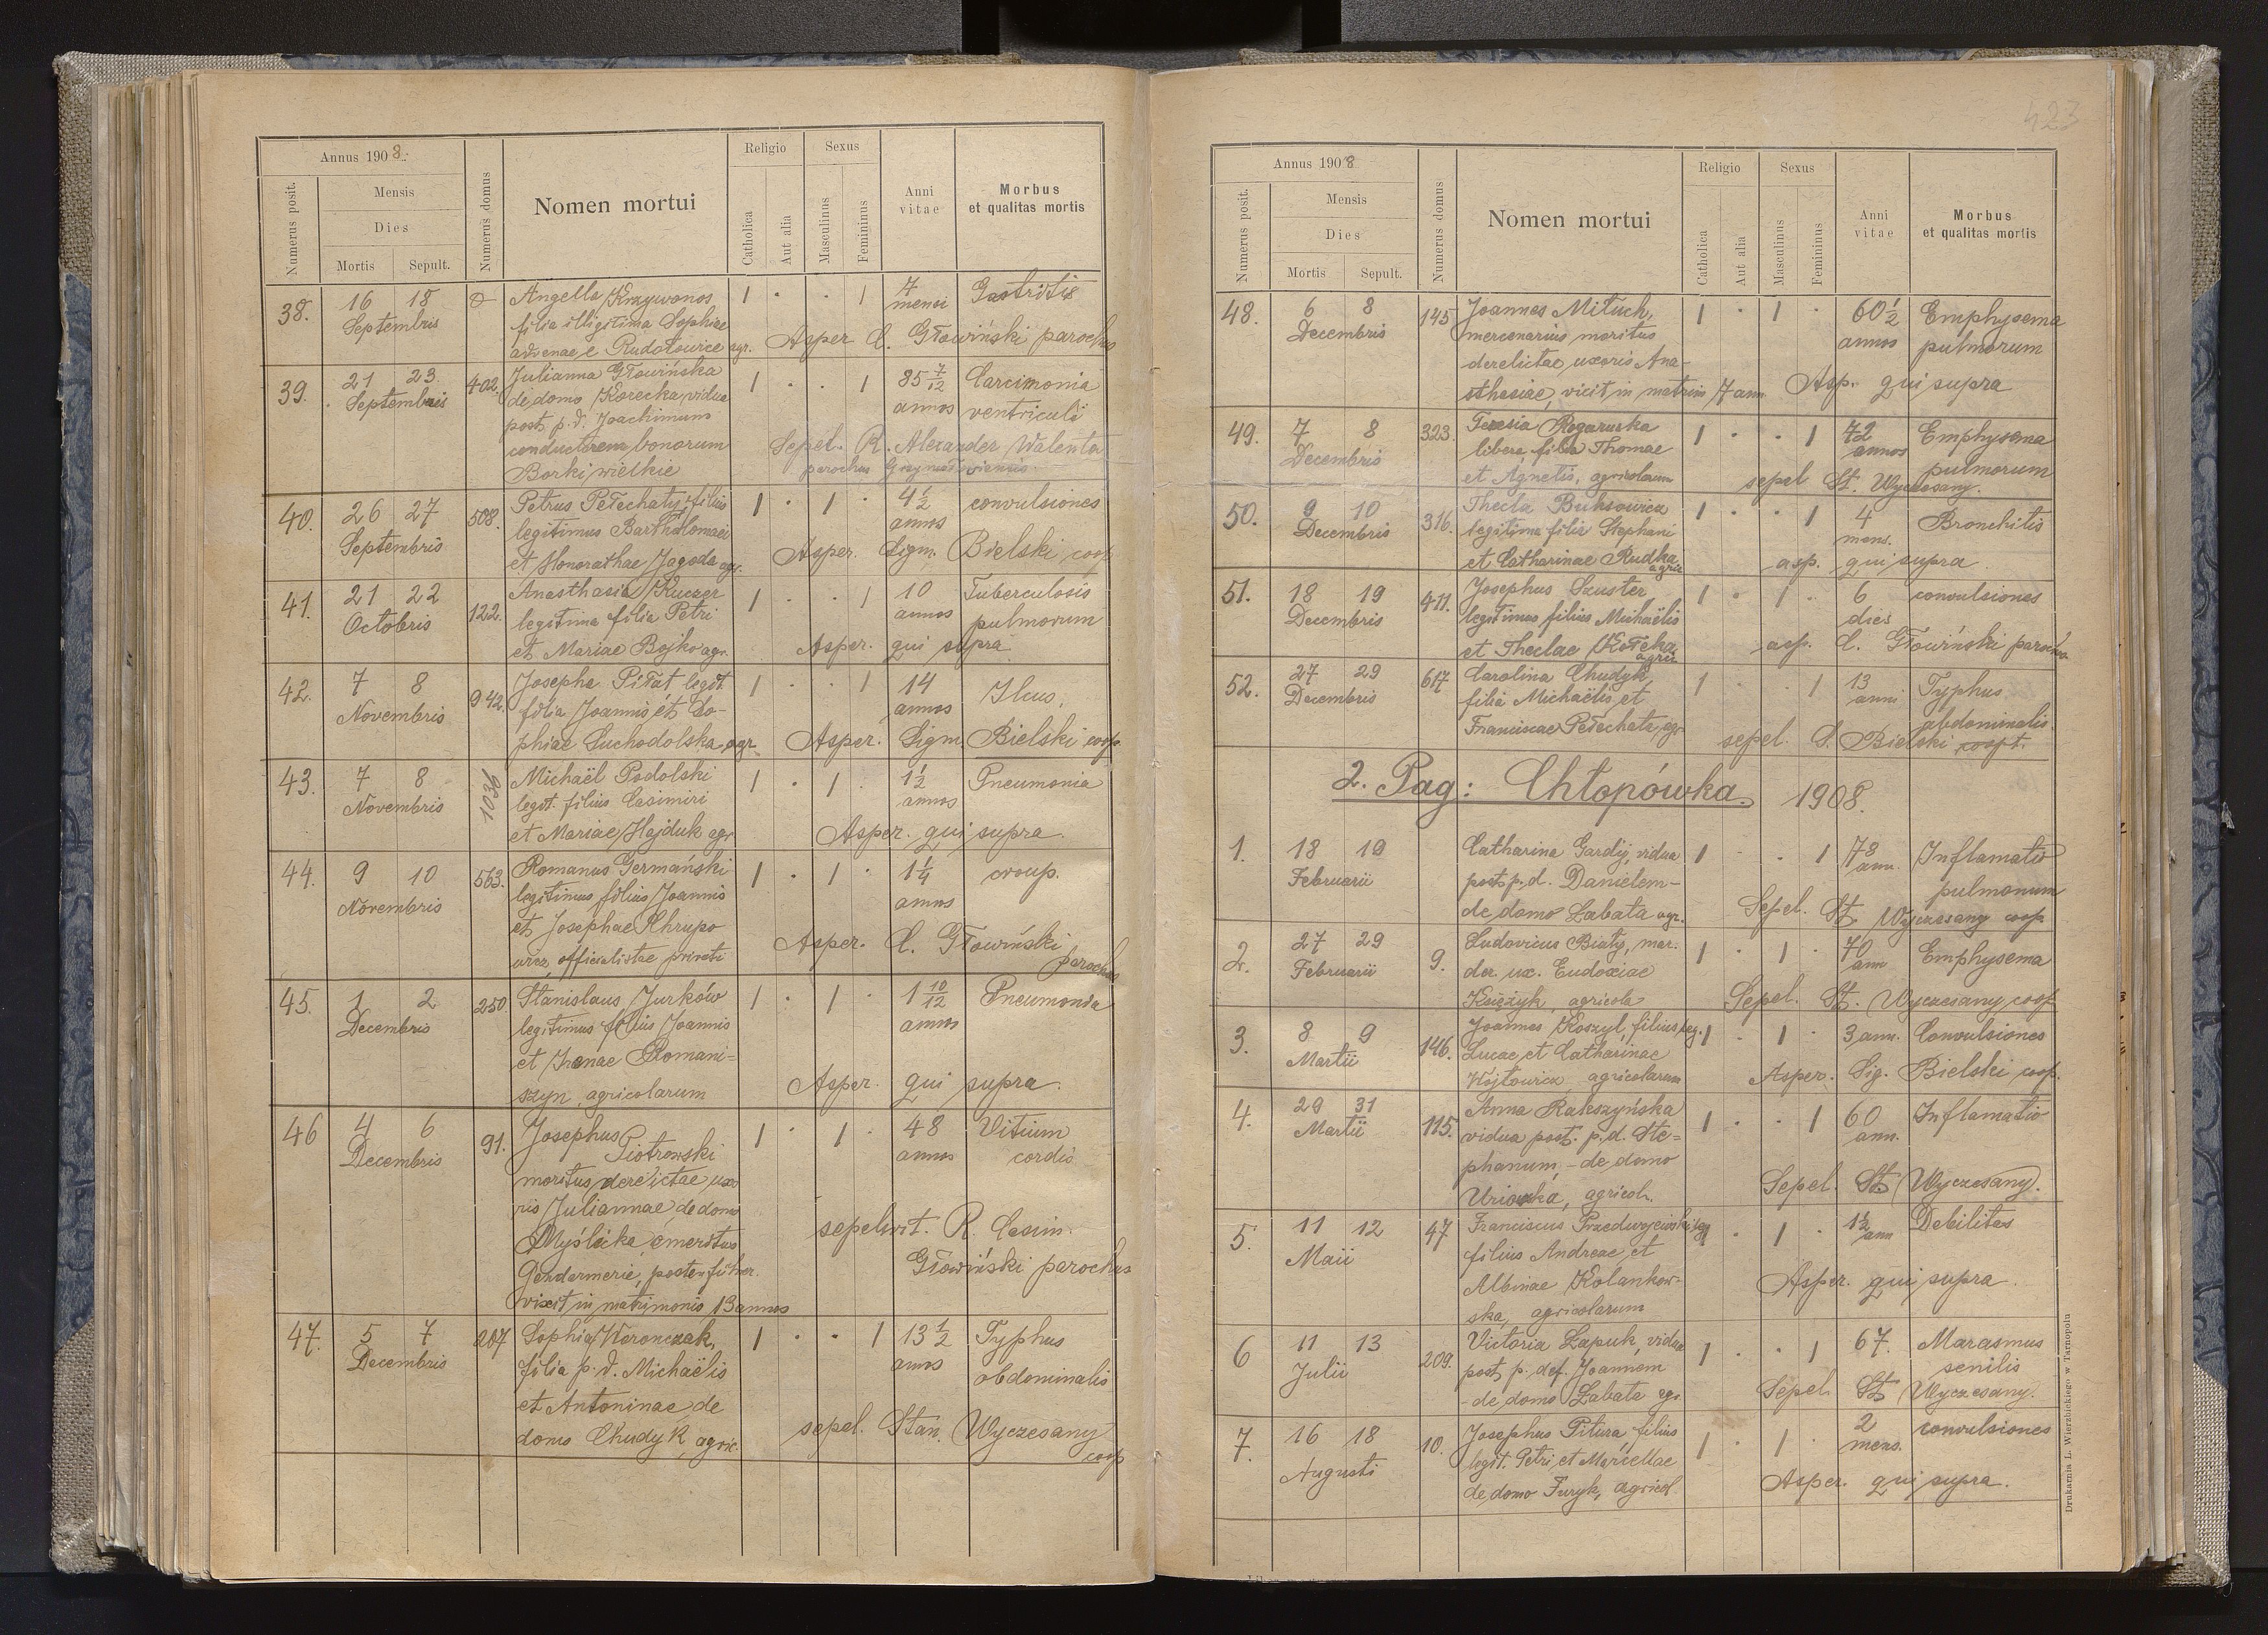 Annus 1908.
Numerus posit.
Mensis
Dies
Mortis Sepult.
Numerus domus
Nomen mortui
Religio
Catholica
Aut alia
Sexus
Masculinus
Femininus
Anni vitae
Morbus
et qualitas mortis
38. 16 18 Septembris
Angella Krzywonos
filia illigitima Sophiae
advenae e Rudołowice agr.
1 . . 1 4 mensi Gastritis
Asper C. Głowiński parochus
39. 21 23 Septembris 402.
Julianna Głowińska
de domo Korecka, vidua
post p. d. Joachimum
conductorem bonorum
Borki wielkie
1 . . 1 85 7/12 annos Carcimonia ventriculi
Sepel. R. Alexander Walenta
parochus
40. 26 27 Septembris 508.
Petrus Pełechaty, filius
legitimus Bartholomaei
et Honorathae Jagoda agr.
1 . 1 . 4 1/2 annos convulsiones
Asper. Sigm. Bielski coop
41. 21 22 Octobris 122.
Anasthasia Kuczer
legitima filia Petri
et Mariae Bojko agr.
1 . . 1 10 annos Tuberculosis pulmorum
Asper. qui supra
42. 7 8 Novembris 942.
Josepha Piłat legit.
filia Joannis et So-
phiae Suchodolska agr.
1 . . 1 14 annos Ileus,
Asper. Sigm. Bielski coop.
43. 7 8 Novembris 1036
Michaël Podolski
legit. filius Casimiri
et Mariae Hajduk agr.
1 . 1 . 1 1/2 annos Pneumonia
Asper. qui supra.
44. 9 10 Novembris 563.
Romanus Germański
legitimus filius Joannis
et Josephae Chrupo
wicz, officialistae privati
1 . 1 . 1 1/4 annos croup.
Asper. C. Głowiński
parochus
45. 1 2 Decembris 250
Stanislaus Jurków
legitimus filius Joannis
et Irenae Romani=
szyn, agricolarum
1 . 1 . 1 10/12 annos Pneumonia
Asper. qui supra.
46 4 6 Decembris 91.
Josephus
Piotrowski
maritus derelictae uxo
ris Juliannae, de domo
Myślicka, emeritus
Gendarmerie, postenführer.
vixit in matrimonio 13 annos
1 . 1 . 48 annos Vitium cordis
sepelivit. R. Casim.
Głowiński parochus
47. 5 7 Decembris 207
Sophia Woronczak,
filia p. d. Michaëlis
et Antoninae, de
domo Chudyk, agric.
1 . . 1 13 1/2 annos Typhus abdominalis
sepel. Stan. Wyczesany
coop
423
Annus 1908
Numerus posit.
Mensis
Dies
Mortis Sepult.
Numerus domus
Nomen mortui
Religio
Catholica
Aut alia
Sexus
Masculinus
Femininus
Anni vitae
Morbus
et qualitas mortis
48. 6 8 Decembris 145
Joannes Mituch,
mercenarius maritus
derelictae, uxoris Ana-
sthasiae, vicit in matrim 7 ann.
1 . 1 . 60 1/2 annos Emphysema pulmorum
Asp. qui supra
49. 7 8 Decembris 323.
Teresia Rogaruska
libera, filia Thomae
et Agnetis, agricolarum
1 . . 1 72 annos Emphysema pulmorum
sepel St. Wyczesany.
50. 9 10 Decembris 316.
Thecla Buksowicz
legitima filia Stephani
et Catharinae Rudka
agric.
1 . . 1 4 mens. Bronchitis
asp. qui supra
51. 18 19 Decembris 411.
Josephus Szuster
legitimus filius Michaëlis
et Theclae Kołcka
agric
1 . 1 . 6 dies convulsiones
asp. C. Głowiński parochus
52. 27 29 Decembris 617
Carolina Chudyk,
filia Michaëlis et
Franciscae Pełechata, agr
1 . . 1 13 anni Typhus abdominalis
sepel. S. Bielski coopt.
2. Pag: Chłopówka. 1908.
1. 18 19 Februarii
Catharina Gardij, vidua
post p. d. Danielem-
de domo Łabata agr.
1 . . 1 78 ann. Inflamatio pulmonum
Sepel. St. Wyczesany coop
2. 27 29 Februarii 9.
Ludovicus Biały, mar.
der. ux. Eudoxiae
Księżyk, agricola
1 . 1 . 70 ann Emphysema
Sepel. St. Wyczesany, coop
3. 8 9 Martii 146.
Joannes Koszyl, filius leg.
Lucae et Catharinae
Wójtowicz, agricolarum
1 . 1 . 3 ann. Convulsiones
Asper. Sig. Bielski coop.
4. 29 31 Martii 115.
Anna Rakszyńska
vidua post. p. d. Ste=
phanum, - de domo
agricol.
1 . . 1 60 ann. Inflamatio
Sepel. St. Wyczesany.
5. 11 12 Maii 47
Franciscus
filius Andreae et
Albinae Kolankow-
ska, agricolarum
1 . 1 . 1 1/2 ann Debilitas
Asper. qui supra.
6 11 13 Julii 209.
Victoria Łapuk, vidua
post p. def. Joannem
- de domo Łabata agr
1 . . 1 67. Marasmus senilis
Sepel. St. Wyczesany.
7. 16 18 Augusti 10.
Josephus Pitura, filius
legit. Petri et Marcellae
de domo Furyk, agricol.
1 . 1 . 2 mens. convulsiones
Asper. qui supra.
Drukarnia L. Wierzbickiego w Tarnopolu